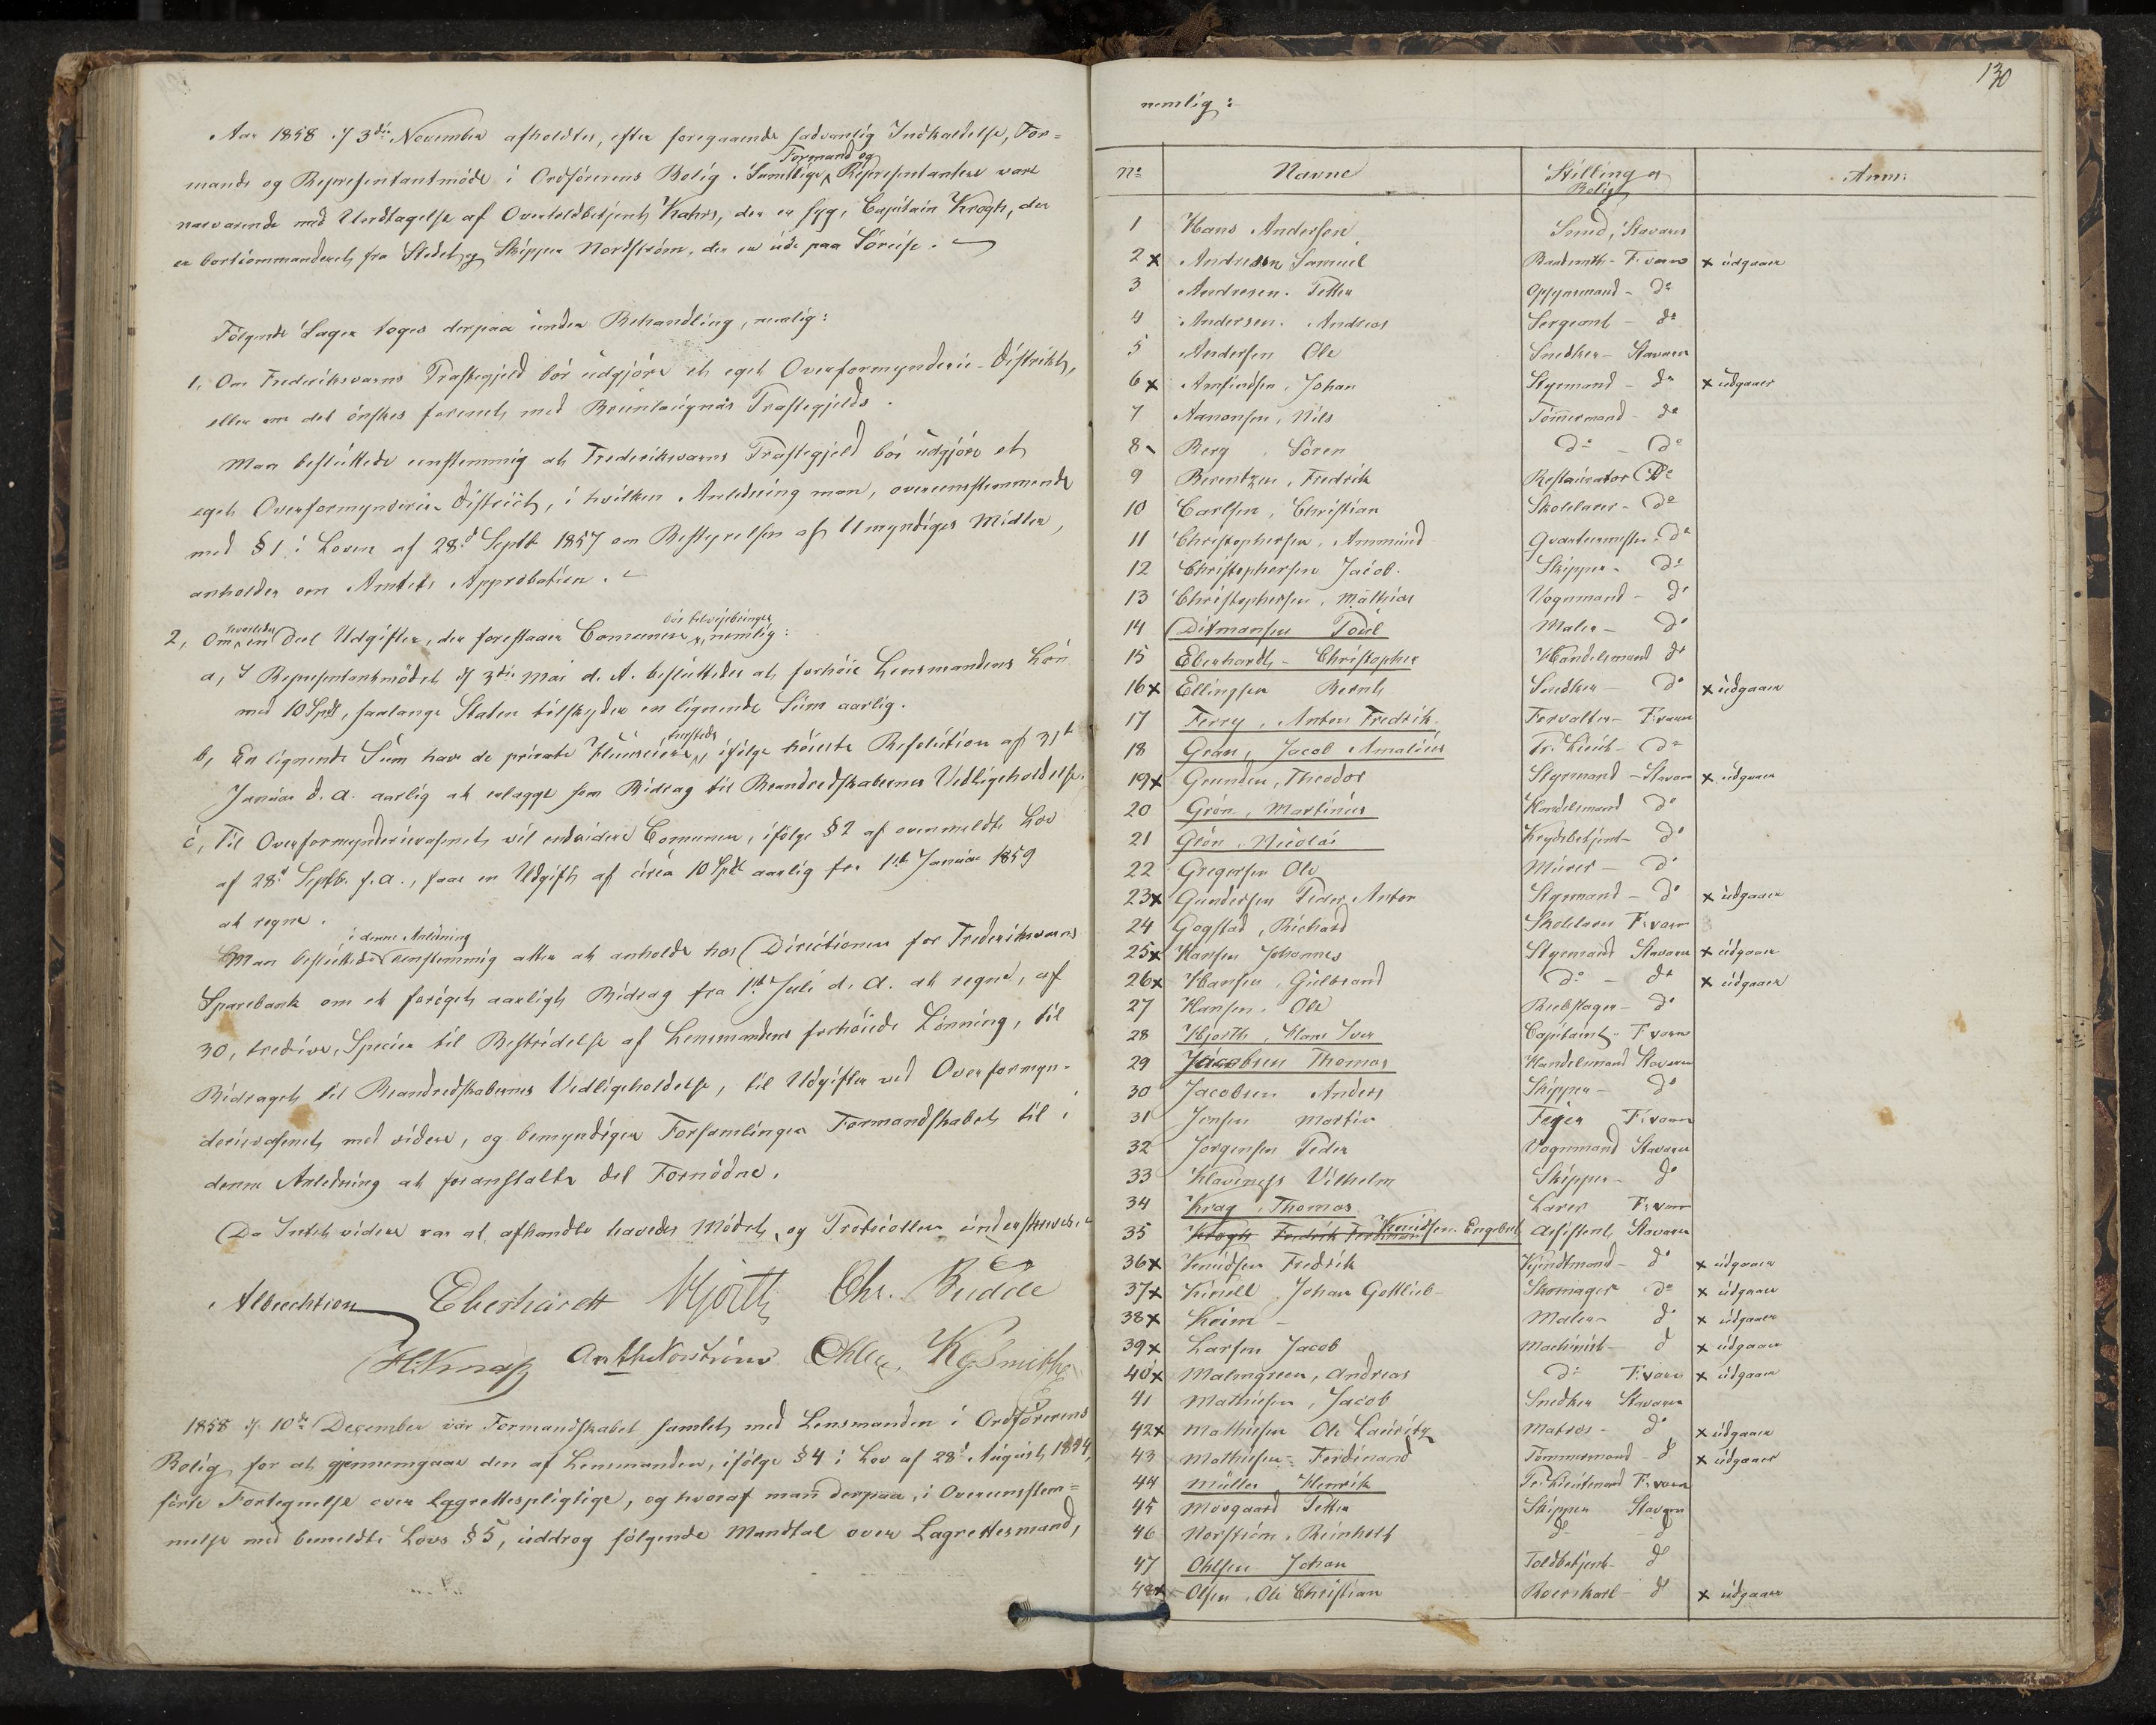 Aar 1858 d/ 3die November afholdtes, efter foregaaende sædvanlig Indkaldelse, For=
Formand og
mands og Repræsentantmøde i Ordførerens Bolig. Samtlige Repræsentanter vare
nærværende med Undtagelse af Overtoldbetjent Kahrs, der er syg, Capitain Krogh, der
er bortcommanderet fra Stedet og Skipper Nordstrøm, der er ude paa Søreise.
Følgende Sager toges derpaa under Behandling, nemlig:
1, Om Frederiksværns Præstegjeld bør udgjøre et eget Overformynderie-Distrikt,
eller om det ønskes forenet med Brunlaugnæs Præstegjelds.
Man besluttede eenstemmig at Frederiksværns Præstegjeld bør udgjøre et
eget Overformynderie District, i hvilken Anledning man, overeensstemmende
med § 1 i Loven af 28d Septb 1857 om Bestyrelsen af Umyndiges Midler,
anholder om Amtets Approbation.
hvorledes bør tilveiebringes
2, Om en Deel Udgifter, der forestaaer Communen, nemlig:
a, I Repræsentantmødet d/ 3die Mai d. A. besluttedes at forhøie Lensmandens Løn
med 10 Spd, saalænge Staten tilskyder en lignende Sum aarlig.
hersteds
b, En lignende Sum have de private Huuseiere, ifølge høieste Resolution af 31t
Januar d. A. aarlig at erlægge som Bidrag til Brandredskabernes Vedligeholdelse.
c, Til Overformynderievæsenet vil endvidere Communen, ifølge § 2 af ovenmeldte Lov
af 28d Septb. f. A., faae en Udgift af circa 10 Spd aarlig fra 1ste Januar 1859
at regne.
i denne Anledning
Man besluttede eenstemmig atter at anholde hos Directionen for Frederiksværns
Sparebank om et forøget aarligt Bidrag fra 1ste Juli d. A. at regne, af
30, tredive, Species til Bestridelse af Lensmandens forhøiede Lønning, til
Bidraget til Brandredskabernes Vedligeholdelse, til Udgifter ved Overformyn-
derievæsenet med videre, og bemyndiger Forsamlingen Formandskabet til i
denne Anledning at foranstalte det Fornødne.
Da Intet videre var at afhandle hævedes Mødet, og Protocollen underskreves.
Albrechtson Eberhardt Hjorth Chr. Budde
H. Knap Norstrøm Smith
1858 d/ 10de December var Formandskabet samlet med Lensmanden i Ordførerens
Bolig for at gjennemgaae den af Lensmanden, ifølge § 4 i Lov af 28d August 1854,
førte Fortegnelse over Laggrettespligtige, og hvoraf man derpaa, i Overeensstem=
melse med bemeldte Lovs § 5, uddrog følgende Mandtal over Lagrettesmænd,
130
nemlig:
No Navne Stilling og Bolig Anm:
1 Hans Andersen Smed, Staværn
2 x Andresen Samuel F. værn x udgaaer
3 Andresen. Petter Opsynsmand - do
4 Andersen. Andreas Sergeant - do
5 Andersen Ole Snedker - Staværn
6 x Amundsen, Johan Styrmand - do x udgaaer
7 Aanonsen, Nils Tømmermand do
8 Berg, Søren do - do
9 Berentzen, Fredrik Restauratør do
10 Carlsen, Christian Skolelærer - do
11 Christophersen, Ammund Qvarteermester. do
12 Christophersen Jacob. Skipper - do
13 Christophersen, Mathias Vognmand - do
14 Ditmansen Poul Maler - do
15 Eberhardt - Christopher Handelsmand do
16 x Ellingsen Bernt Snedker - do x udgaaer
17 Ferry, Anton Fredrik. Forvalter - F. værn
18 Gran, Jacob Amalius Pr. Lieut - do
19 x Grunden, Theodor Styrmand - Staværn x udgaaer
20 Grøn, Martinius Handelsmand do
21 Grøn, Nicolai Krydsbetjent - do
22 Gregersen Ole Murer - do
23 x Gundersen Peder Anton Styrmand - do x udgaaer
24 Gogstad, Richard Skolelærer F. værn
25 x Hansen Johannes Styrmand Staværn x udgaaer
26 x Hansen, Gulbrand do - do x udgaaer
27 Hansen. Ole Rebslager - do
28 Hjorth, Hans Iver Capitaint - F værn
29 Jacobsen Thomas Handelsmand Staværn
30 Jacobsen Anders Skipper - do
31 Jensen Martin Feier F. værn
32 Jørgensen Peder Vognmand Staværn
33 Klavenæss Vilhelm Skipper - do
34 Krag, Thomas Lærer F. værn
35 Krogh Fredrik Ferdinand Knudsen Engebret Assistent, Staværn
36 x Knudsen Fredrik Kjendtmand - do x udgaaer
37 x Johan Gottlieb Skomager do x udgaaer
38 x Keim - Maler - do x udgaaer
39 x Larsen Jacob Machinist - do x udgaaer
40 x Malmgreen, Andreas do F. værn x udgaaer
41 Mathiesen, Jacob Snedker Staværn
42 x Mathiesen Ole Lauritz Matros - do x udgaaer
43 Mathiesen - Ferdinand Tømmermand - do x udgaaer
44 Müller Henrik Pr. Lieutenant F. værn
45 Movgaard Petter Skipper Staværn
46 Norstrøm, Reinholt do - do
47 Ohlsen Johan Toldbetjent - do
48 x Olsen, Ole Christian Roerskarl - do x udgaaer